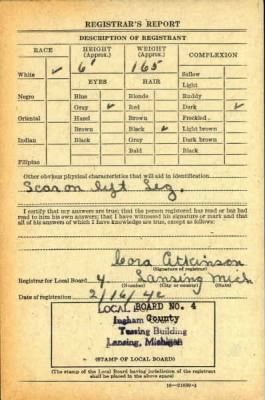 REGISTRAR'S REPORT
DESCRIPTION OF REGISTRANT
RACE HEIGHT (Approx.) WEIGHT (Approx.) COMPLEXION
White ✓ 6' 165 Sallow
Light
EYES HAIR
Negro Blue Blonde Ruddy
Gray ✓ Red Dark ✓
Oriental Hazel Brown Freckled
Brown Black ✓ Light brown
Indian Black Gray Dark brown
Bald Black
Filipino
Other obvious physical characteristics that will aid in identification
Scar on left Leg.
I certify that my answers are true; that the person registered has read or has had
read to him his own answers; that I have witnessed his signature or mark and that
all of his answers of which I have knowledge are true, except as follows:
Cora Atkinson
(Signature of registrar)
Registrar for Local Board 4 Lansing Mich
(Number) (City or county) (State)
Date of registration 2/16/42
LOCAL BOARD NO. 4
Ingham County
Tussing Building
Lansing, Michigan
(STAMP OF LOCAL BOARD)
(The stamp of the Local Board having jurisdiction of the registrant
shall be placed in the above space.)